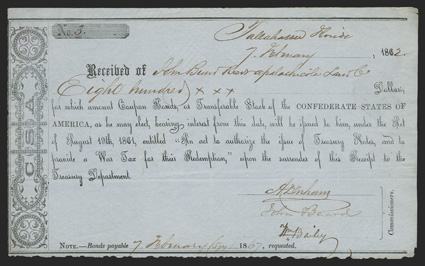 No. 3.
Tallahassee Florida
7. February 1862.
Received of John Beard
Eight hundred × × × Dollars,
for which amount Coupon Bonds, or Transferable Stock of the CONFEDERATE STATES OF
AMERICA, as he may elect, bearing interest from this date, will be issued to him, under the Act
of August 19th, 1861, entitled "An act to authorize the issue of Treasury Notes, and to
provide a War Tax for their Redemption," upon the surrender of this Receipt to the
Treasury Department.
C.S.A.
John Beard
Commissioners.
NOTE.—Bonds payable 7 February 186 requested.